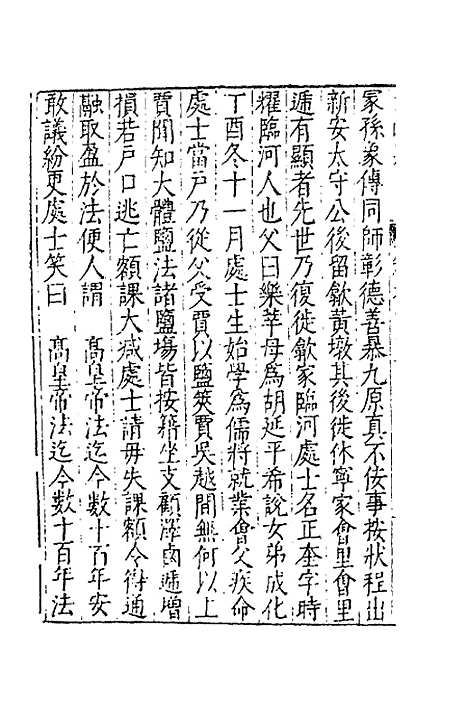 冡孫象傳同師彰德善暴九原真不佞事按狀程出
新安太守公後留歙黃墩其後徙休寧家會里會里
遞有顯者先世乃復徙歙家臨河處士名正奎字時
耀臨河人也父曰樂莘母爲胡延平希說女弟成化
丁酉冬十一月處士生始學爲儒將就業會父疾命
處士當戶乃從父受賈以鹽筴賈吳越間無何以上
賈聞知大體鹽法諸鹽塲皆按籍坐支顧澤鹵遞增
損若戶口逃亡額課大减處士請毋失課額令得通
融取盈於法便人謂　髙皇帝法迄今數十百年安
敢議紛更處士笑曰　髙皇帝法迄今數十百年法